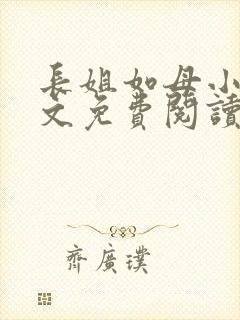 長姐如母小
文免費閱讀
齊廣璞